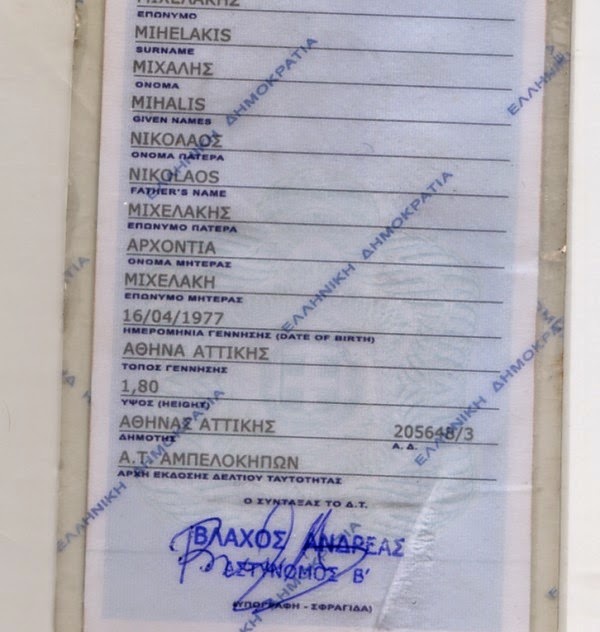 ΜΙΧΕΛΑΚΗΣ
ΕΠΩΝΥΜΟ
MIHELAKIS
SURNAME
ΜΙΧΑΛΗΣ
ΟΝΟΜΑ
MIHALIS
GIVEN NAMES
ΝΙΚΟΛΑΟΣ
ΟΝΟΜΑ ΠΑΤΕΡΑ
NIKOLAOS
FATHER'S NAME
ΜΙΧΕΛΑΚΗΣ
ΕΠΩΝΥΜΟ ΠΑΤΕΡΑ
ΑΡΧΟΝΤΙΑ
ΟΝΟΜΑ ΜΗΤΕΡΑΣ
ΜΙΧΕΛΑΚΗ
ΕΠΩΝΥΜΟ ΜΗΤΕΡΑΣ
16/04/1977
ΗΜΕΡΟΜΗΝΙΑ ΓΕΝΝΗΣΗΣ (DATE OF BIRTH)
ΑΘΗΝΑ ΑΤΤΙΚΗΣ
ΤΟΠΟΣ ΓΕΝΝΗΣΗΣ
1,80
ΥΨΟΣ (HEIGHT)
ΑΘΗΝΑΣ ΑΤΤΙΚΗΣ 205648/3
ΔΗΜΟΤΗΣ Α.Δ.
Α.Τ. ΑΜΠΕΛΟΚΗΠΩΝ
ΑΡΧΗ ΕΚΔΟΣΗΣ ΔΕΛΤΙΟΥ ΤΑΥΤΟΤΗΤΑΣ
Ο ΣΥΝΤΑΞΑΣ ΤΟ Δ.Τ.
ΒΛΑΧΟΣ ΑΝΔΡΕΑΣ
ΑΣΤΥΝΟΜΟΣ Β'
(ΥΠΟΓΡΑΦΗ - ΣΦΡΑΓΙΔΑ)
ΕΛΛΗΝΙΚΗ ΔΗΜΟΚΡΑΤΙΑ
ΕΛΛΗΝΙΚΗ ΔΗΜΟΚΡΑΤΙΑ
ΕΛΛΗΝΙΚΗ ΔΗΜΟΚΡΑΤΙΑ
ΕΛΛΗΝΙΚΗ ΔΗΜΟΚΡΑΤΙΑ